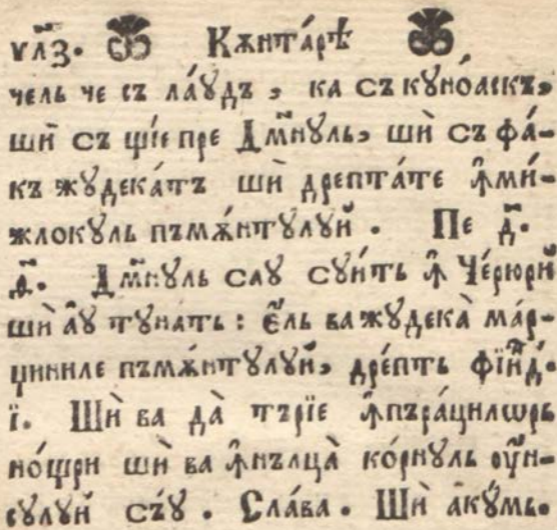 ѵл҃з. Кѫнта́рѣ
чель че съ ла́ꙋдъ, ка съ кꙋно́аскъ,
шѝ съ щі́е пре Дм҃нꙋль, шѝ съ фа́-
къ жꙋдека́тъ шѝ дрепта́те ꙟ҆ми́-
жлокꙋль пъмѫ́нтꙋлꙋй. Пе д҃.
д҃. Дм҃нꙋль саꙋ сꙋи́ть ꙟ҆ Че́рюрй
шѝ а҆́ꙋ тꙋна́ть: є҆́ль ва жꙋдека̀ ма́р-
џиниле пъмѫ́нтꙋлꙋй, дре́пть фїи́нд.
ї. Шѝ ва да̀ тъ́рїе ꙟ҆пъра́цилѡрь
но́щри шѝ ва ꙟ҆нълца̀ ко́рнꙋль ᲂу҆н-
сꙋлꙋй съ́ꙋ. Сла́ва. Шѝ акꙋ́мь.